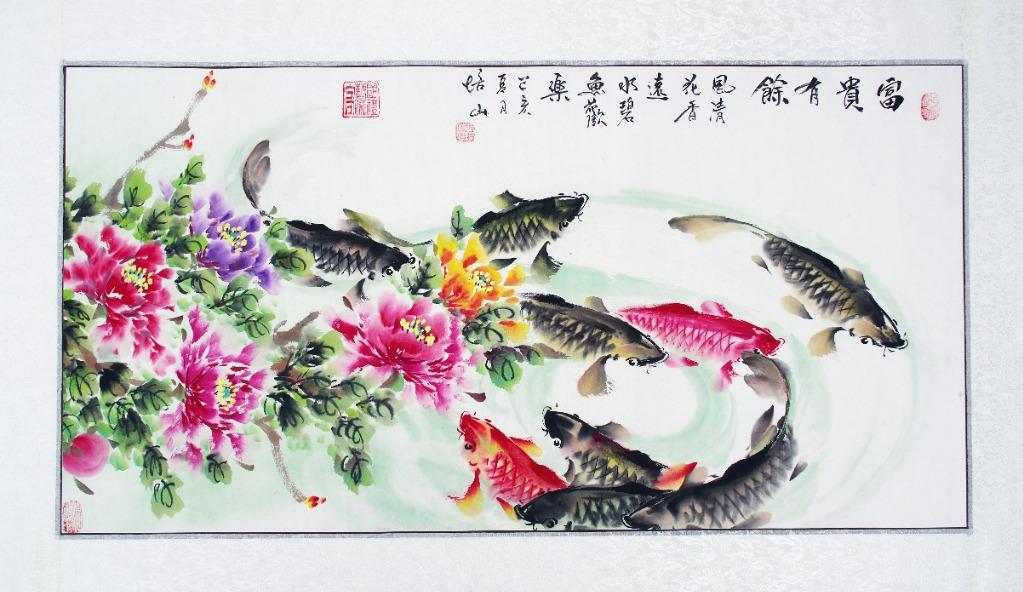 富貴有餘
風清
花香
遠
水碧
魚歡
樂
己亥
夏月
培山